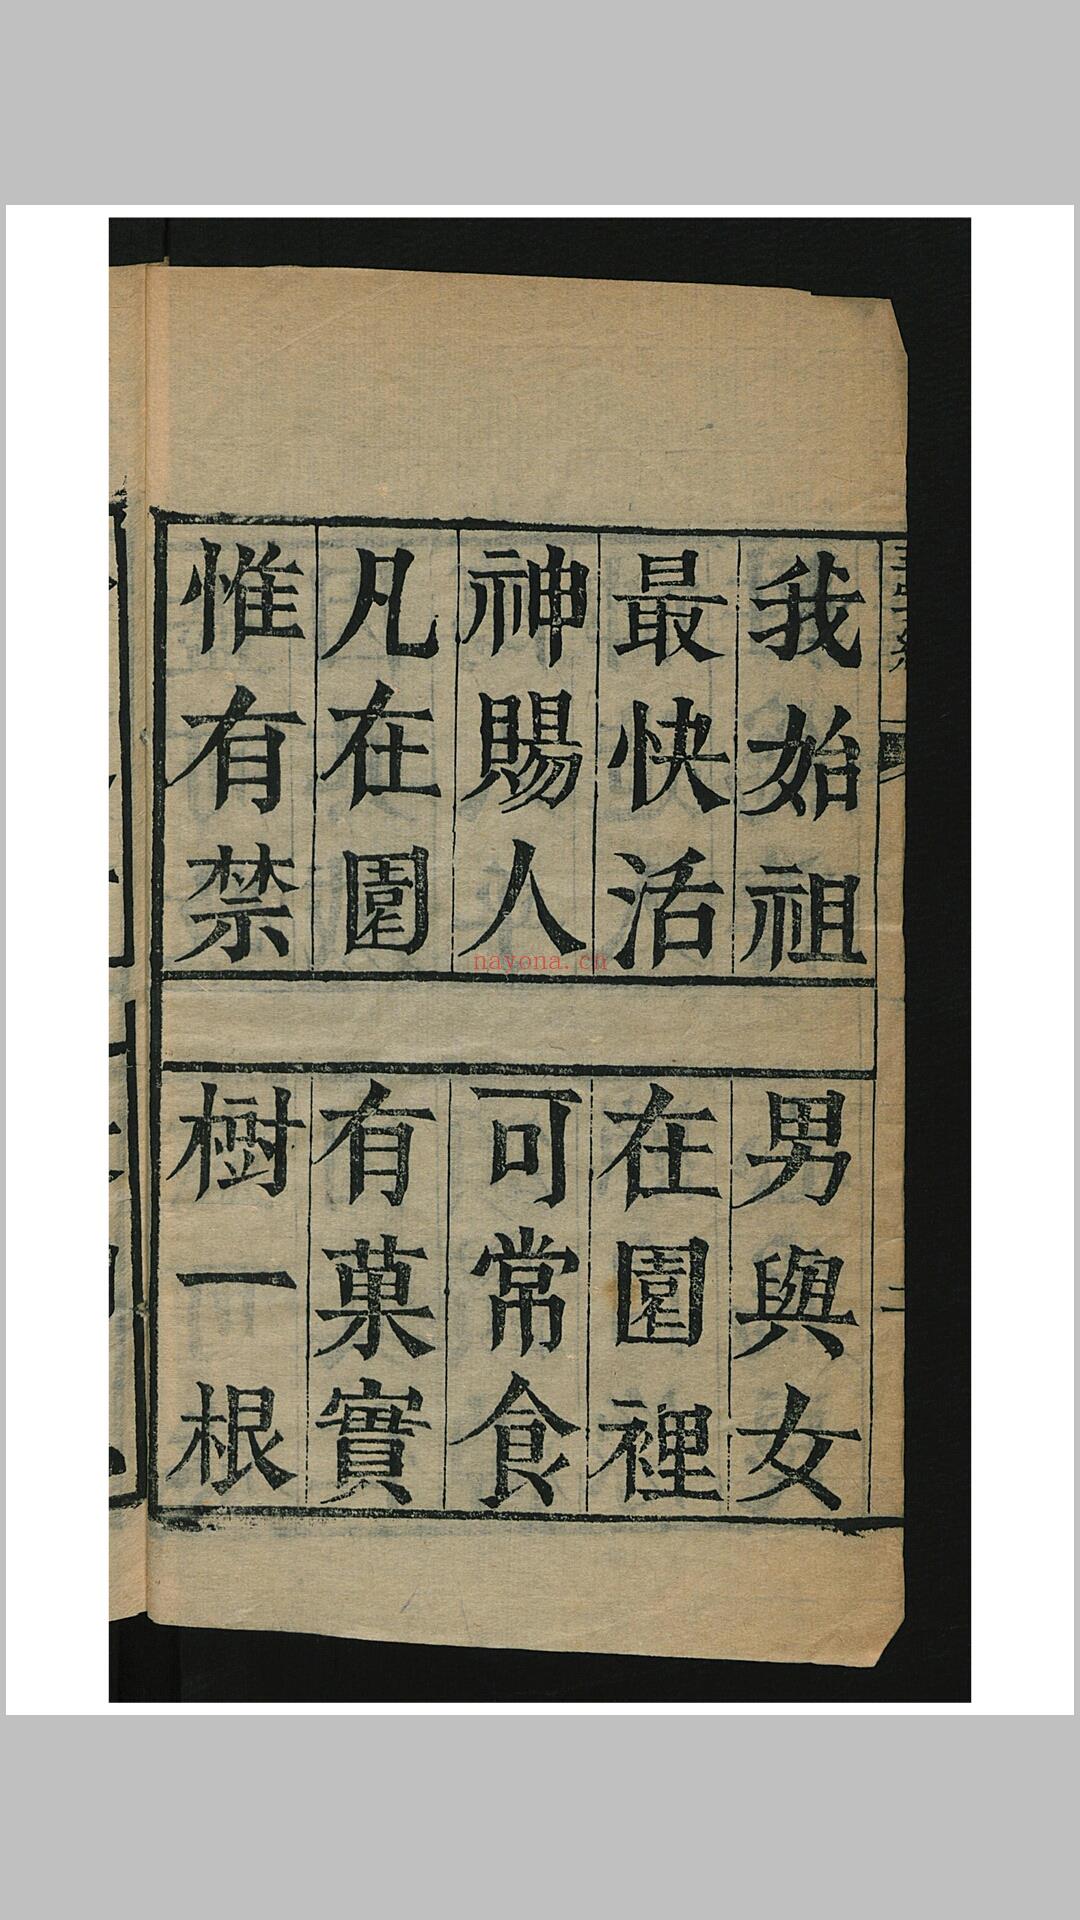 我始祖 男與女
最快活 在園裡
神賜人 可常食
凡在園 有菓實
惟有禁 樹一根
二
nayona.cn